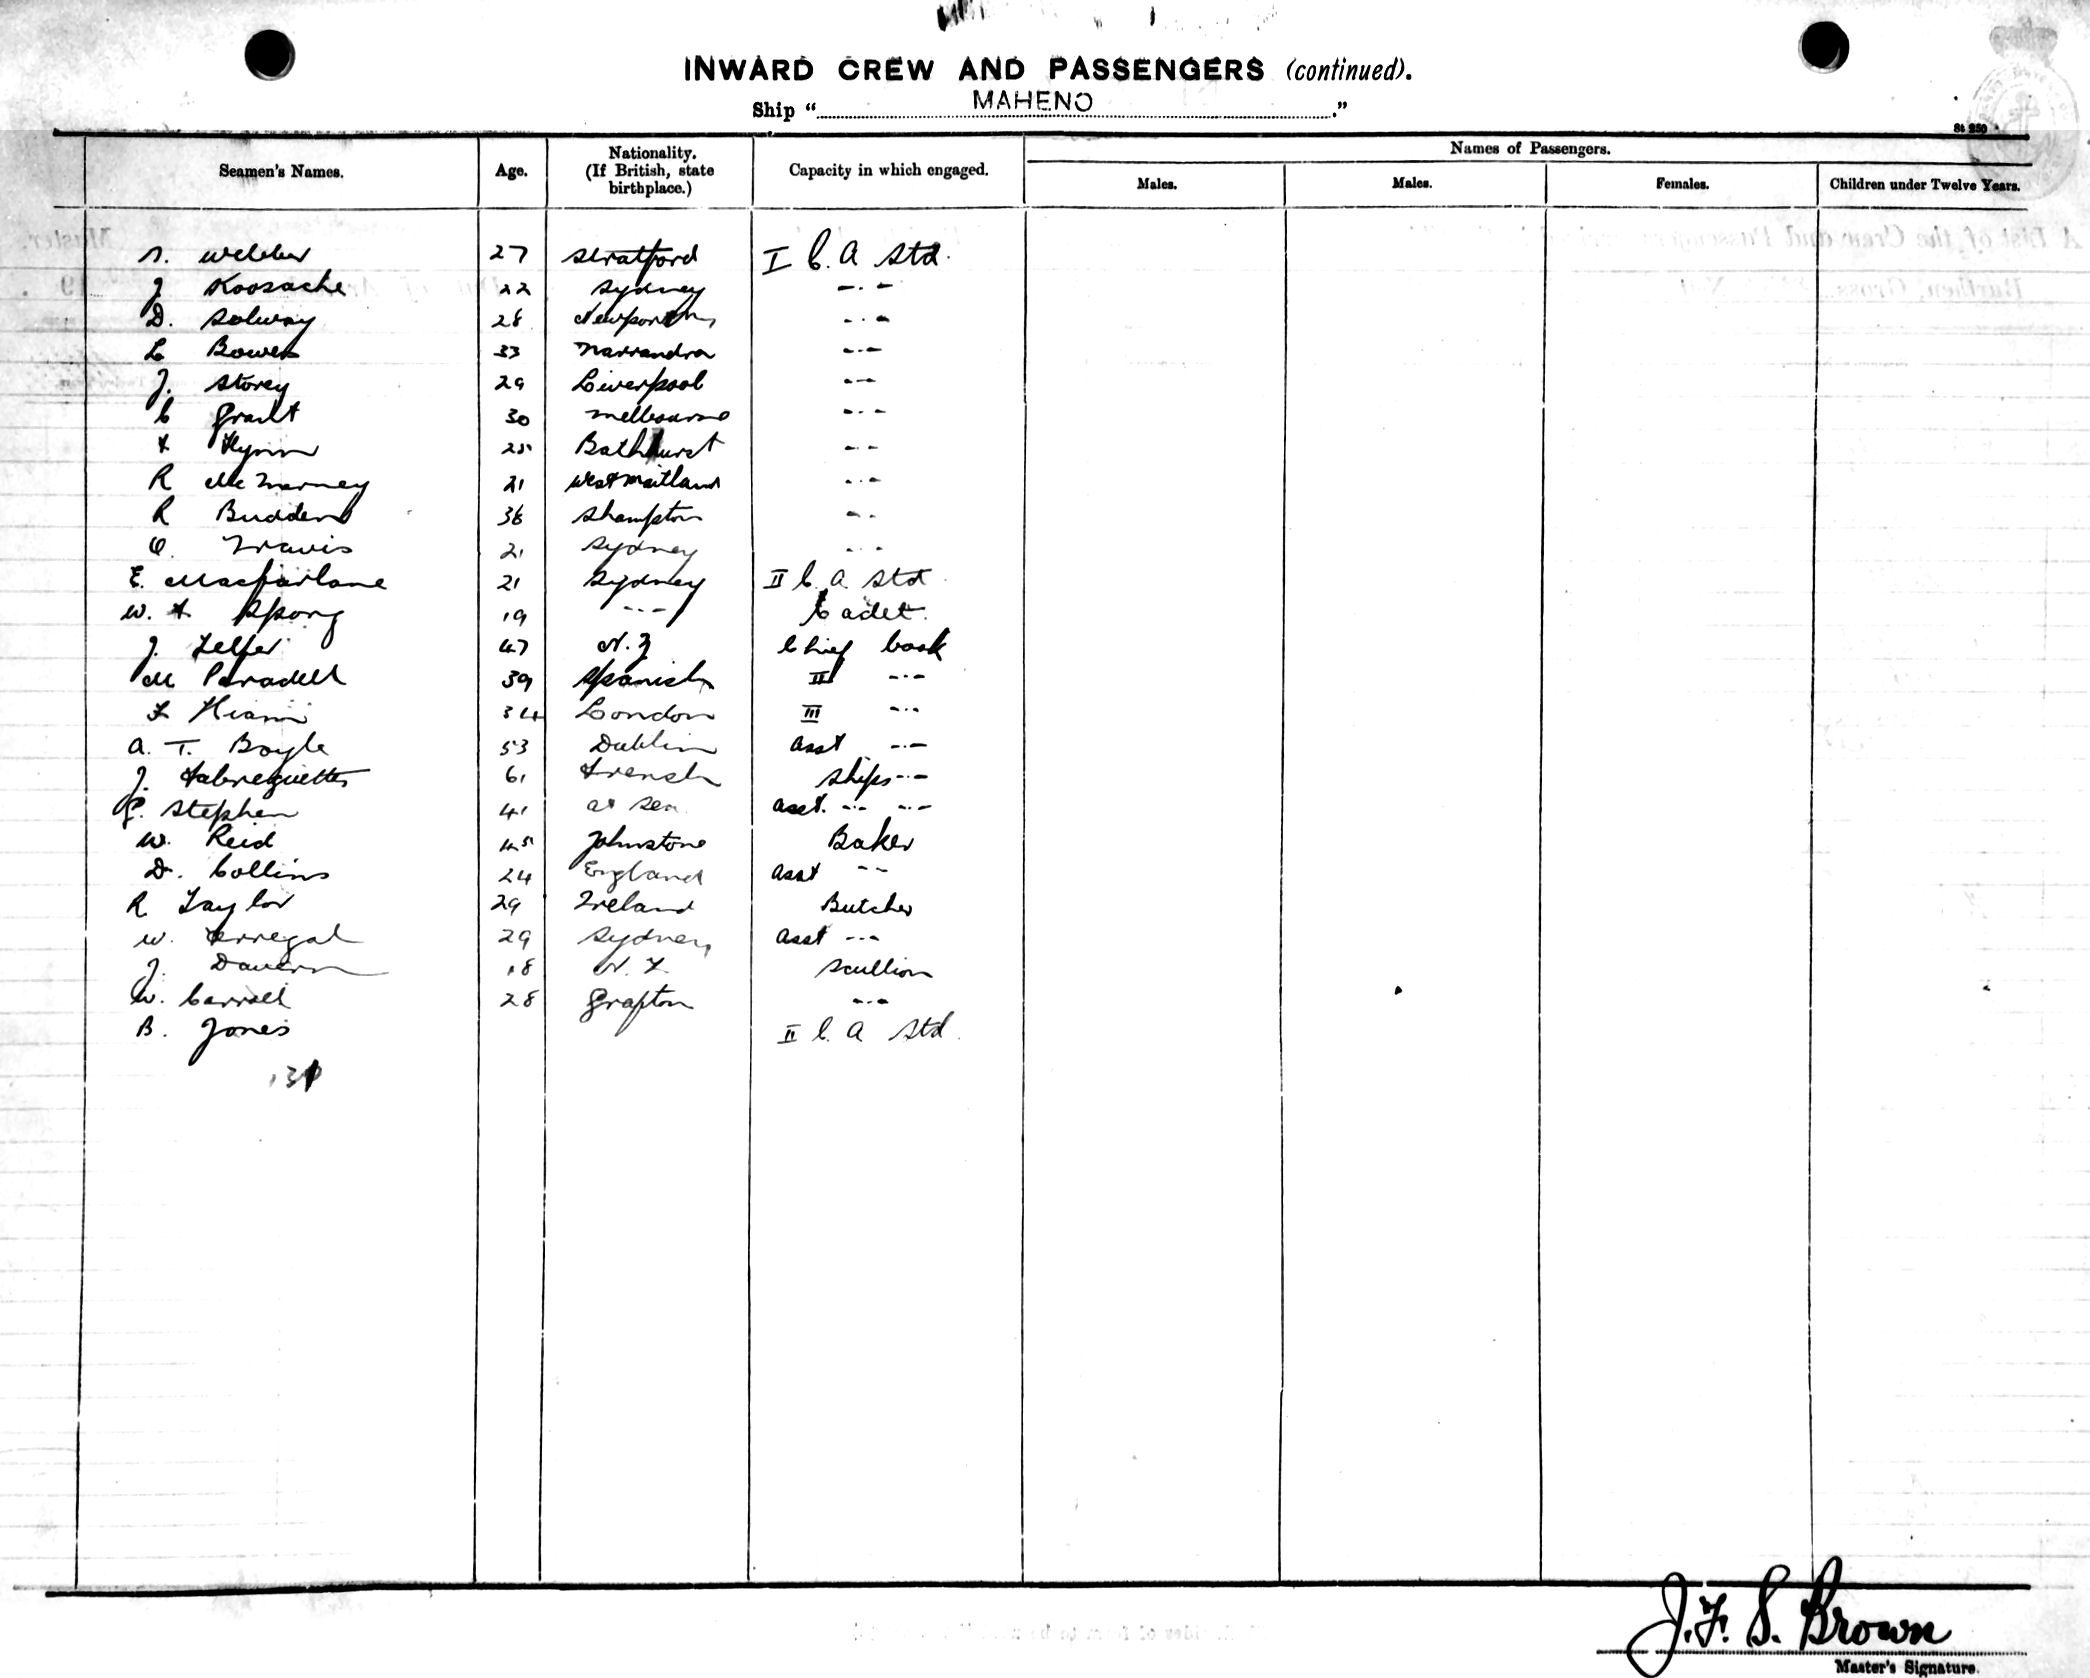 INWARD CREW AND PASSENGERS (continued).
Ship " MAHENO ."
St 250
Names of Passengers.
Seamen's Names. Age. Nationality. (If British, state birthplace.) Capacity in which engaged. Males. Males. Females. Children under Twelve Years.
Webber 27 Stratford I C. A Std.
J Koosache 22 Sydney -..-
D. Solway 28 Newport -..-
L Bower 33 Narrandra -..-
J. Storey 29 Liverpool -..-
C Grant 30 Melbourne -..-
F Flynn 25 Bathhurst -..-
R 21 West Maitland -..-
R Budden 36 Shampton -..-
O. Travis 21 Sydney -..-
E. Macfarlane 21 Sydney II C. A Std
W. F Spong 19 -..- Cadet.
J. Telfer 47 N. Z Chief Cook
M Paradell 39 Spanish II -..-
F 34 London III -..-
A. T. Boyle 53 Dublin Asst -..-
J. Fabreguettes 61 French Ships -..-
P. Stephen 41 at sea Asst. -..- -..-
W. Reid 45 Johnstone Baker
D. Collins 24 England Asst -..-
R Taylor 29 Ireland Butcher
W. 29 Sydney Asst -..-
J. Davern 18 N. Z. Scullion
W. Carroll 28 Grafton -..-
B. Jones II C. A Std.
J. F. S. Brown
Master's Signature.